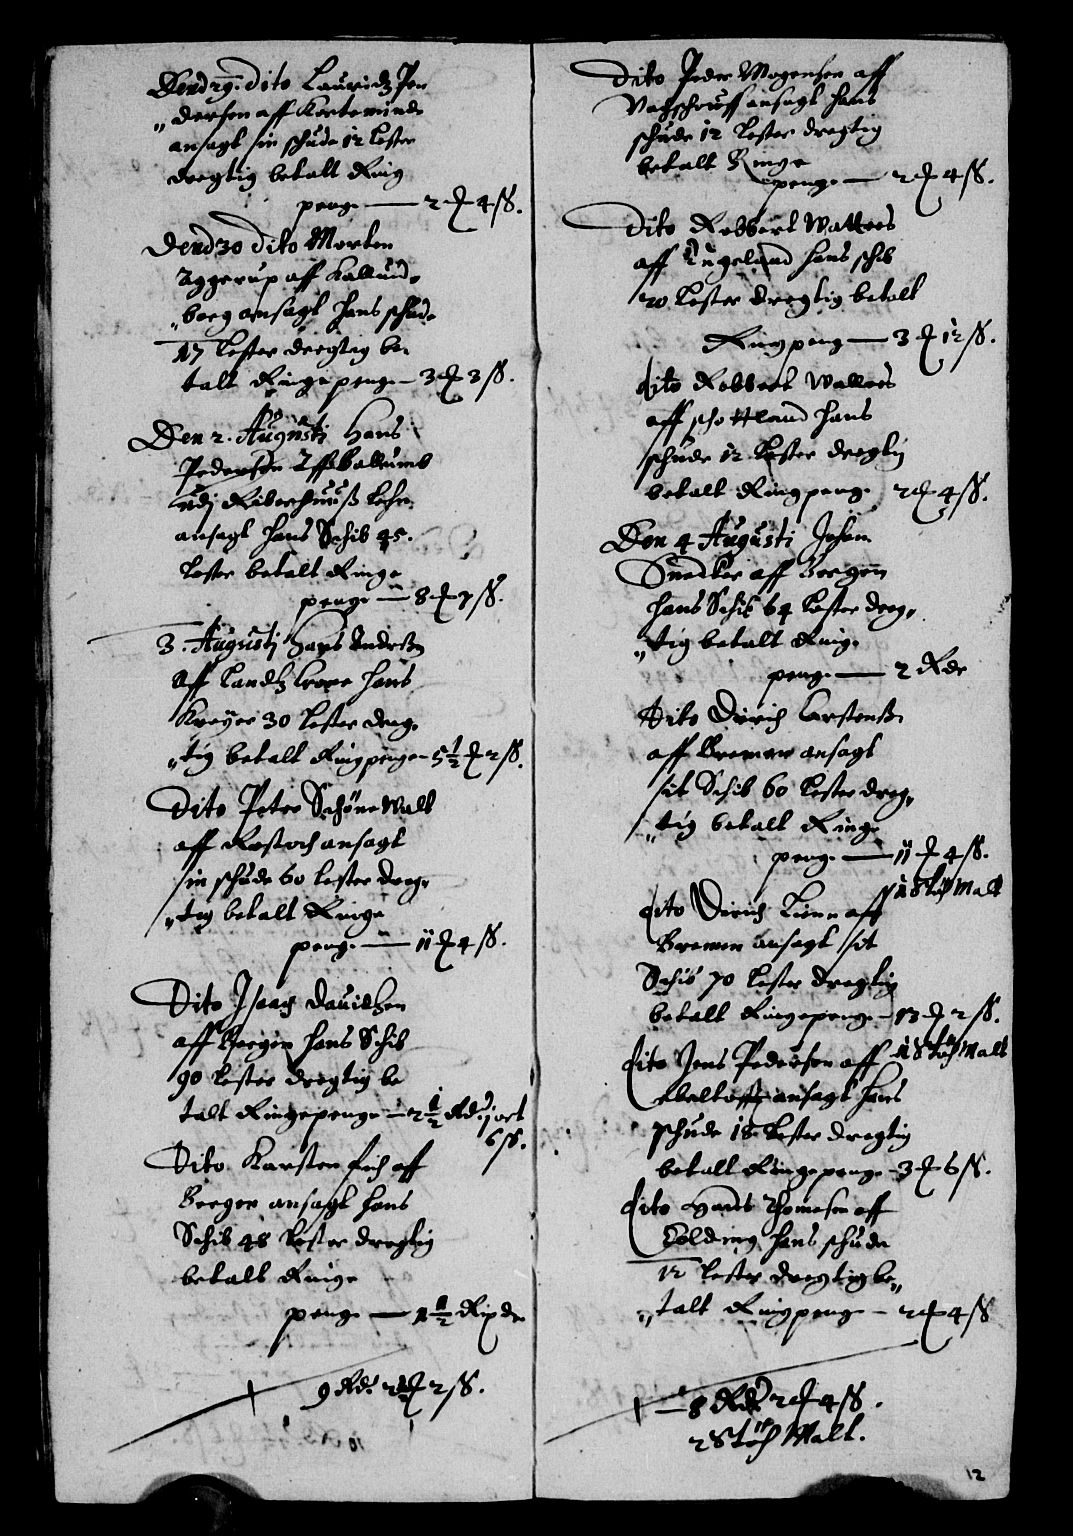 Dend 29. dito Lauridz Pe„
„dersen aff Kerteminde
ansagt sin schude 12 lester
dregtig betalt Ring
penge — 2 ₰ 4 ß.
Dend 30 dito Morten
Aggerup aff Kallund„
„borg ansagt hans schude
17 Lester dregtig be„
talt Ringe penge — 3 ₰ 3 ß.
Den 2. Augusti Hans
Pedersen
udj Riberhuuß Lehn
ansagt hans Schib 45.
Lester betalt Ringe
penge — 8 ₰ 7 ß.
3. Augusti Hans Anderßen
Aff Landtz Crone hans
Kreyer 30 Lester dreg„
„tig betalt Ringpenge — 5½ ₰ 2 ß.
Dito Peter Schönewalt
aff Rostoch ansagt
sin schude 60 lester dreg„
„tig betalt Ringe
penge — 11 ₰ 4 ß.
Dito Isaach Dauidtzen
aff Bergen hans Schib
90 Lester dregtig be
talt Ringepenge — 2½ Rd. j ort
6 ß.
Dito Karsten aff
Bergen ansagt hans
Schib 48 Lester dregtig
betalt Ringe
penge — 1½ Rixdr
9 Rd. 2 ₰ 2 ß.
Dito Peder Mogensen aff
ansagt hans
schude 12 Lester dregtig
betalt Ringe
penge — 2 ₰ 4 ß.
Dito Robbert Watters
aff Engeland hans schib
20 Lester dregtig betalt
Ringpeng — 3 ₰ 12 ß.
Dito Robbert Walters
aff schottland hans
schude 12 Lester dregtig
betalt Ringpenge 2 ₰ 4 ß.
Den 4 Augusti Johan
Snedker aff Bergen
hans Schib 64 Lester dreg„
„tig betalt Ring
penge — 2 Rdr
Dito Dirich Carstenßen
aff Bremen ansagt
sit Schib 60 Lester dreg„
„tig betalt Ringe
penge — 11 ₰ 4 ß.
1 Støch Malt
Dito Dirich Lienn aff
Bremen ansagt sit
Schib 70 Lester dregtig
betalt Ringepenge — 13 ₰ 2 ß.
1 Støch Malt
Dito Jens Pedersen aff
Ebeltofft ansagt hans
schude 18 Lester dregtig
betalt Ringepenge — 3 ₰ 6 ß.
Dito Hans Thomesen aff
Colding hans schude
12 Lester dregtig be„
„talt Ringpenge — 2 ₰ 4 ß
— 8 Rdr 2 ₰ 4 ß.
2 Støch Malt.
12